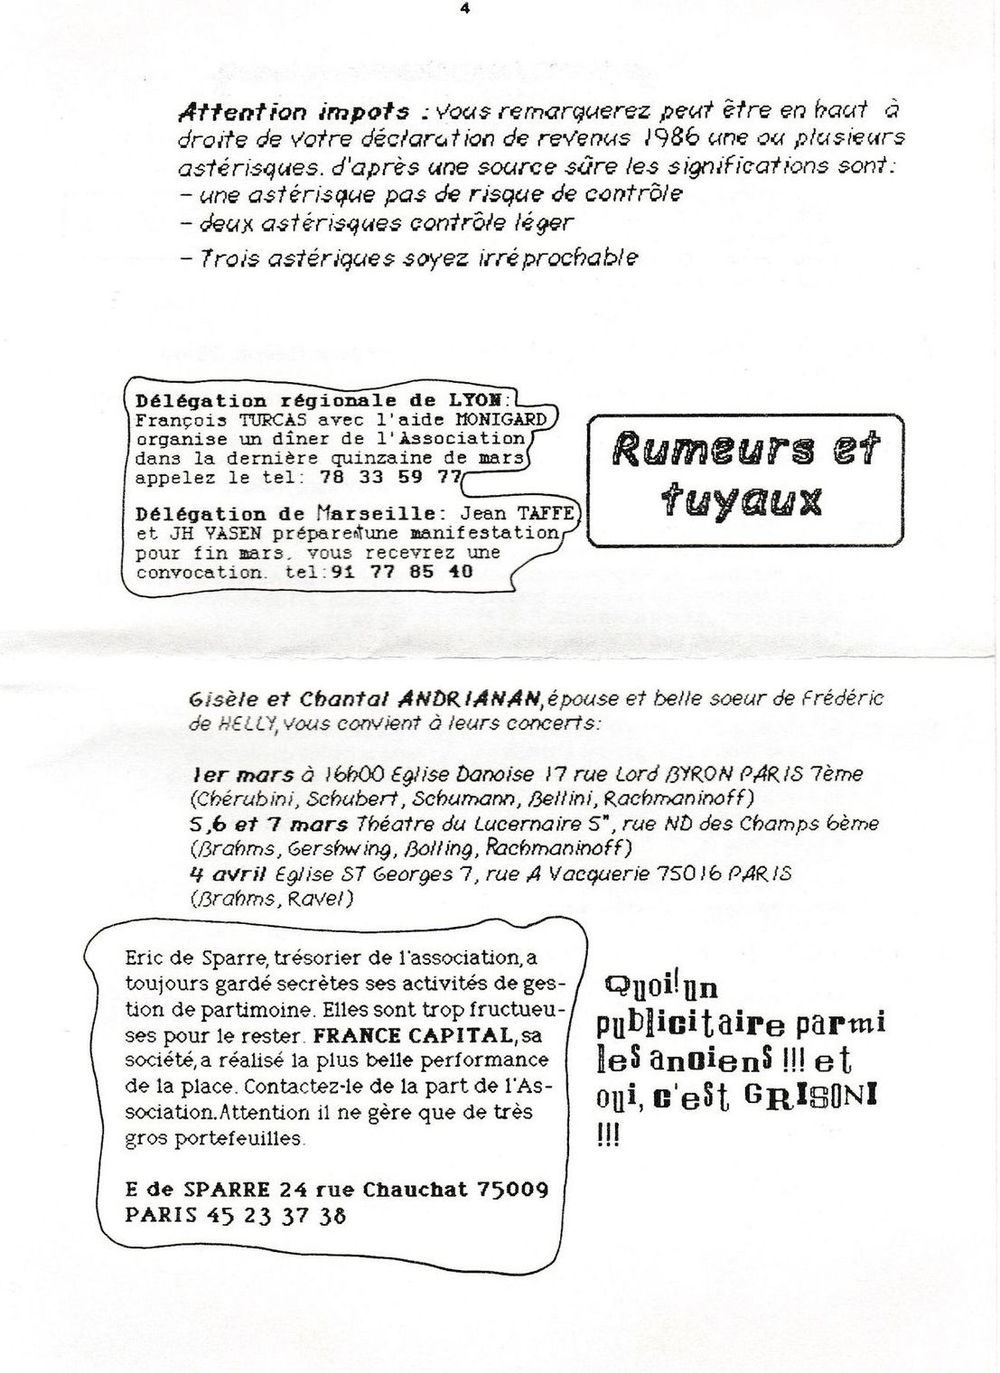 4
Attention impots : vous remarquerez peut être en haut à
droite de votre déclaration de revenus 1986 une ou plusieurs
astérisques. d'après une source sûre les significations sont:
- une astérisque pas de risque de contrôle
- deux astérisques contrôle léger
- Trois astériques soyez irréprochable
Délégation régionale de LYON:
François TURCAS avec l'aide MONIGARD
organise un dîner de l'Association
dans la dernière quinzaine de mars
appelez le tel: 78 33 59 77
Délégation de Marseille: Jean TAFFE
et JH VASEN préparent une manifestation
pour fin mars. vous recevrez une
convocation. tel:91 77 85 40
Rumeurs et
tuyaux
Gisèle et Chantal ANDRIANAN, épouse et belle soeur de Frédéric
de HELLY, vous convient à leurs concerts:
1er mars à 16h00 Eglise Danoise 17 rue Lord BYRON PARIS 7ème
(Chérubini, Schubert, Schumann, Bellini, Rachmaninoff)
5,6 et 7 mars Théatre du Lucernaire 5", rue ND des Champs 6ème
(Brahms, Gershwing, Bolling, Rachmaninoff)
4 avril Eglise ST Georges 7, rue A Vacquerie 75016 PARIS
(Brahms, Ravel)
Eric de Sparre, trésorier de l'association, a
toujours gardé secrètes ses activités de ges-
tion de partimoine. Elles sont trop fructueu-
ses pour le rester. FRANCE CAPITAL, sa
société, a réalisé la plus belle performance
de la place. Contactez-le de la part de l'As-
sociation. Attention il ne gère que de très
gros portefeuilles.
E de SPARRE 24 rue Chauchat 75009
PARIS 45 23 37 38
Quoi! un
publicitaire parmi
les anciens !!! et
oui, c'est GRISONI
!!!